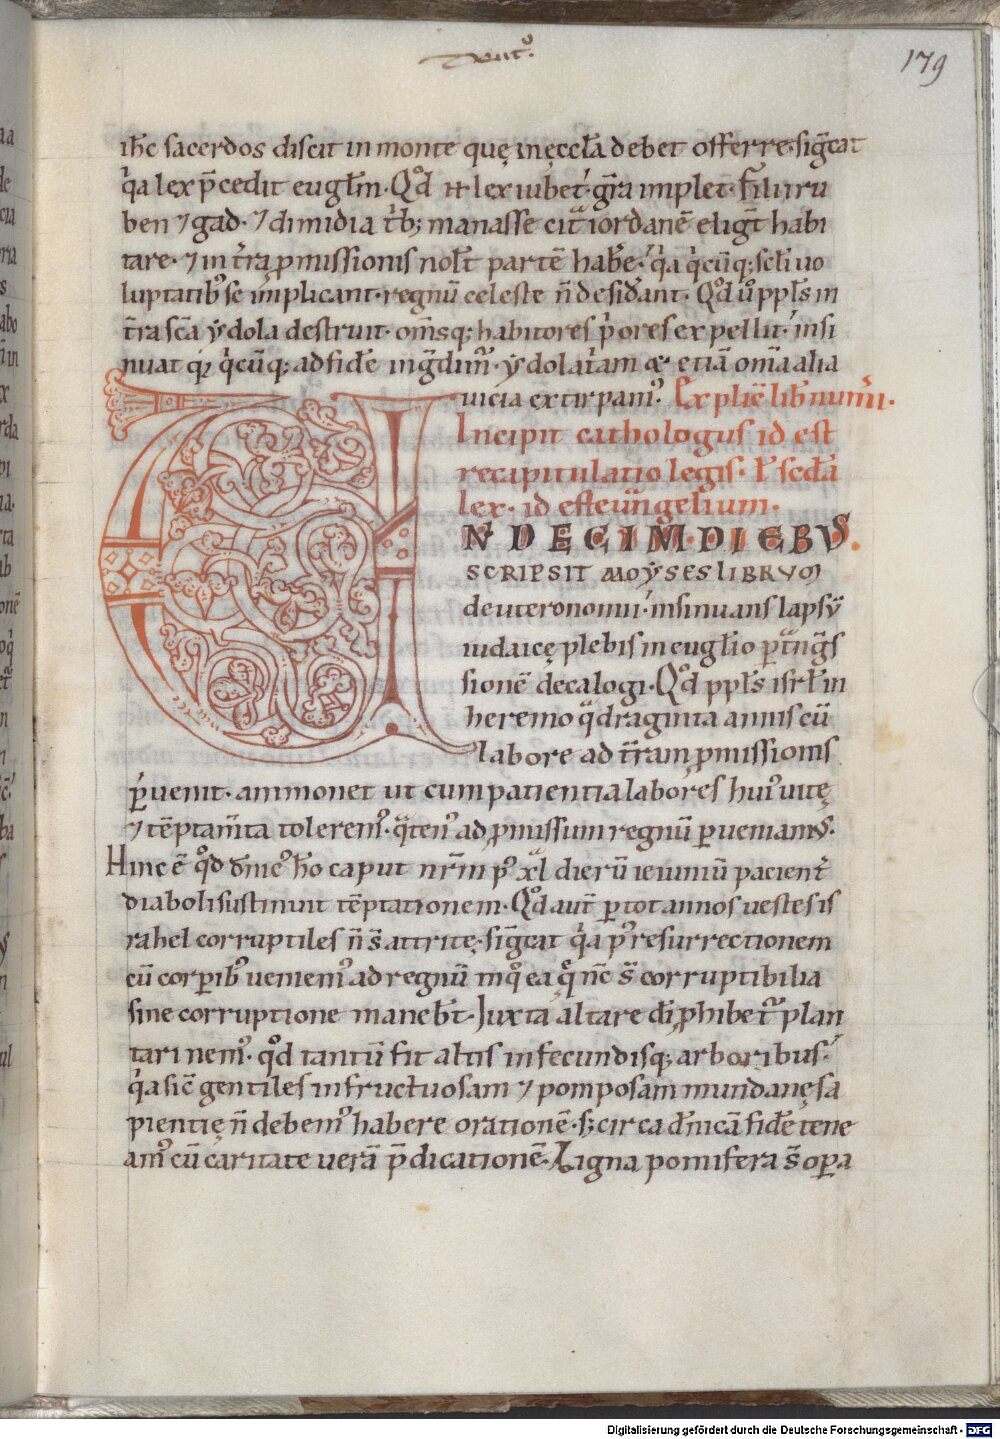 179
ihc sacerdos discit in monte quę in ęccła debet offerre· sig̅cat
q'a lex p̅cedit eugl̅m· Qd̊ lex iubet· gr̅a implet· Filii ru
ben ⁊ gad· ⁊ dimidia tb; manasse cit͛ iordanē elig̅t habi
tare· ⁊ in t̅ra p̱missionis nol̅t partē hab̅e· q'a q'cūq; scl̅i uo
luptatib; se implicant· regnū celeste n̅ desid̅ant· Qd̊ ů ppl̅s in
t̅ra sc̅a ẏdola destruit· om̅sq; habitores p'ores expellit· insi
nuat q'cūq; ad fidē ing̅dim᷒· ẏdolat'am &· etiā om̅a alia
uicia extirpam᷒· Explic̅ lib̅ num̅i·
Incipit cathologus id est
recapitulatio legis· ł sc̅da
lex· id est eu̅ngelium·
UNDECIM·DIEBUS·
SCRIPSIT MOẎSES LIBRUM
deuteronomii· insinuans lapsū
iudaicę plebis in euglio p̱ t͛nsg̅s
sionē decalogi· Qd̊ ppl̅s isrl̅ in
heremo q͛draginta annis cū
labore ad t̅ram p̱missionis
p̱uenit· ammonet ut cum patientia labores hui᷒ uitę
⁊ tēptam̅ta tolerem᷒· q͛ten᷒ ad p̱missum regnū perueniam᷒·
Hinc ē qd̊ dn̅ic᷒ ho̅ caput nr̅m p᷒ xl dierū ieiuniū pacient'
diaboli sustinuit tēptationem· Qd̊ aut̅ p̱ tot annos uestes is
rahel corruptiles n̅ s̅ attritę· sig̅cat q'a p᷒ resurrectionem
cū corp̱ib; ueniem᷒ ad regnū in q̊ ea q̅ nc̅ s̅ corruptibilia
sine corruptione maneb̅t· Iuxta altare di̅ p̱hibet᷒ plan
tari nem᷒· qd̊ tantū fit altis infecundisq; arboribus·
q'a sic̅ gentiles infructuosam ⁊ pomposam mundanę sa
pientię n̅ debem᷒ habere orationē· s; circa dn̅icā fidē tene
am᷒ cū caritate uerā p̅dicationē· Ligna pomifera s̅ op̱a
Digitalisierung gefördert durch die Deutsche Forschungsgemeinschaft - DFG